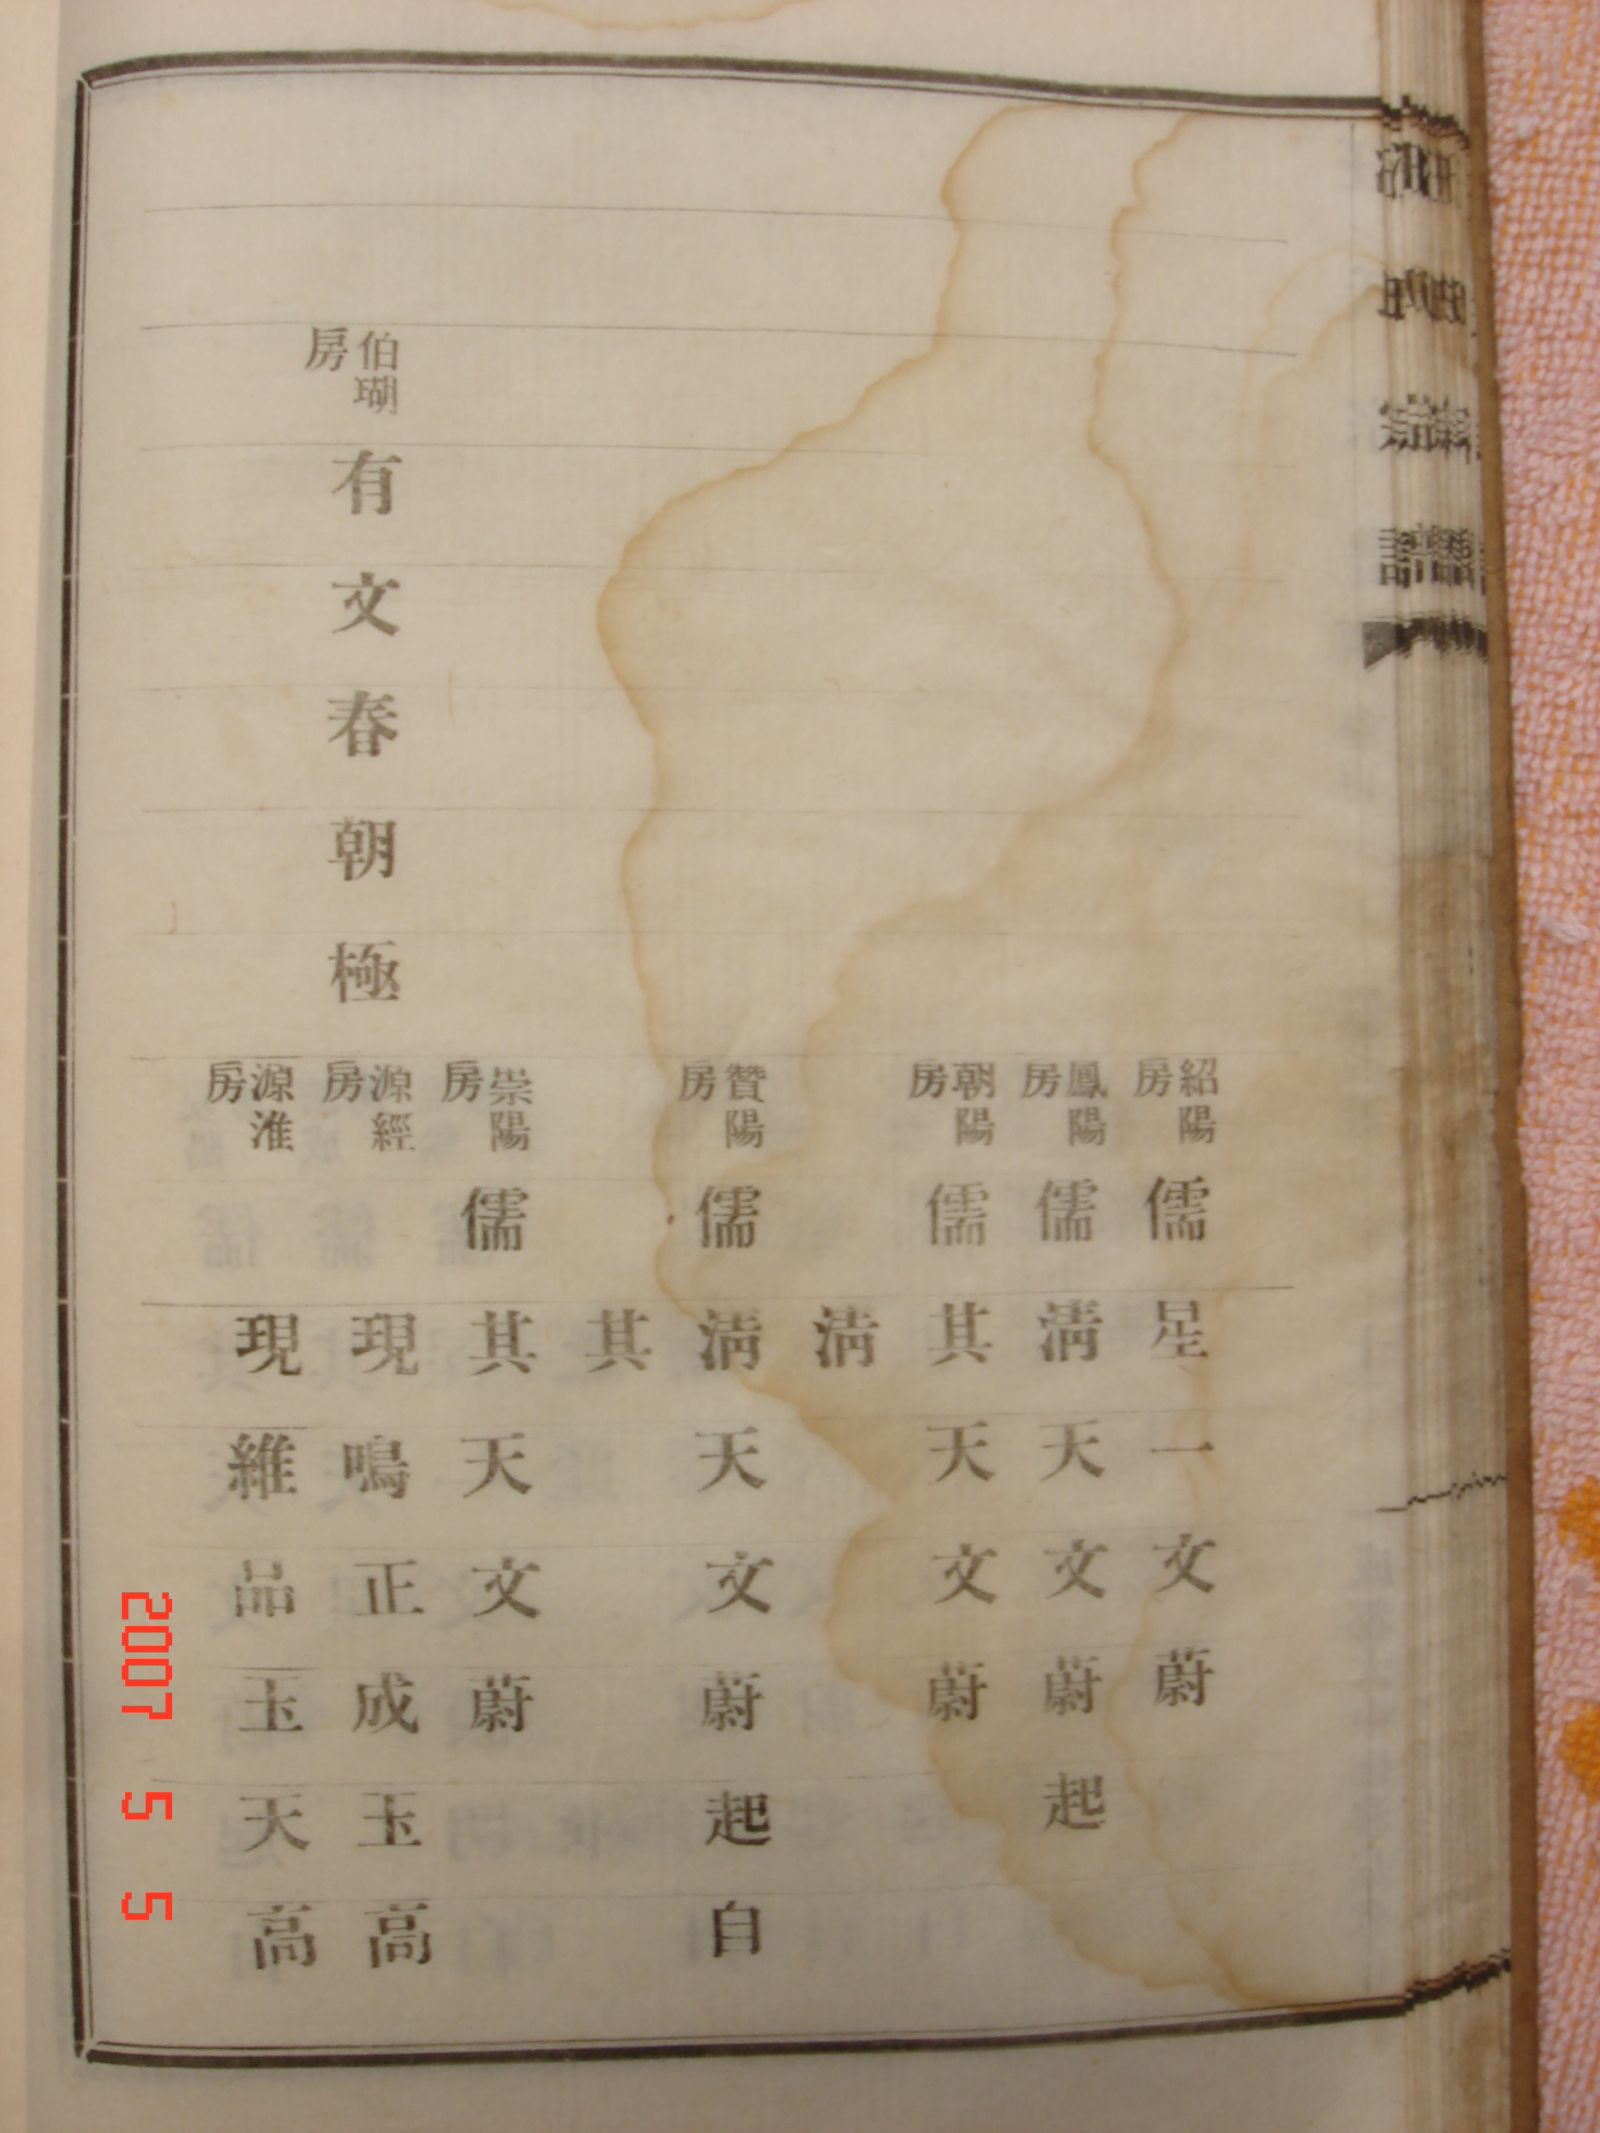 紹陽房 儒 星 一 文 蔚
鳳陽房 儒 淸 天 文 蔚 起
朝陽房 儒 其 天 文 蔚
淸
贊陽房 儒 淸 天 文 蔚 起 自
其
崇陽房 儒 其 天 文 蔚
伯瑚房 有 文 春 朝 極 源經房 現 鳴 正 成 玉 高
源淮房 現 維 品 玉 天 高
2007 5 5